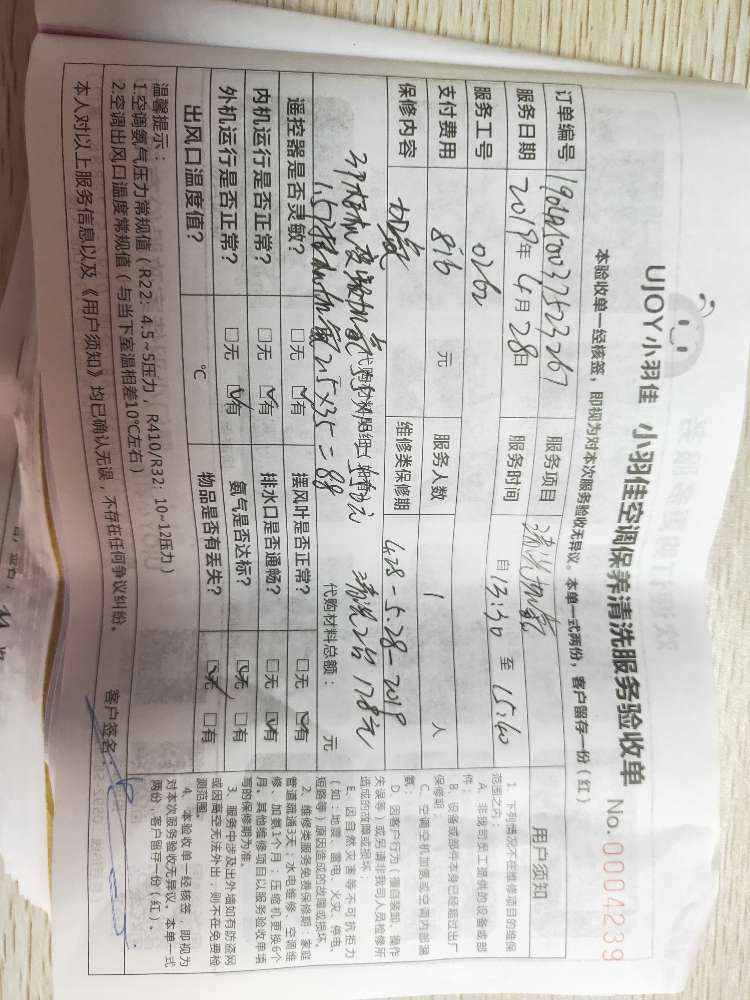 UJOY小羽佳 小羽佳空调保养清洗服务验收单 No. 0004239
本验收单一经核签，即视为对本次服务验收无异议。本单一式两份，客户留存一份（红）
订单编号 服务项目 清洗加氨
服务日期 2019年4月28日 服务时间 自13:30至15:40
服务工号 0162
支付费用 816 元 服务人数 1 人
保修内容 加氨 维修类保修期 4.28-5.28-2019
代购材料明细
清洗2台 178元
1.5P 加氨 2.5×35=88
代购材料总额： 元
遥控器是否灵敏? □无 □有 摆风叶是否正常? □无 □有
内机运行是否正常? □无 □有 排水口是否通畅? □无 □有
外机运行是否正常? □无 □有 氨气是否达标? □无 □有
出风口温度值? ℃ 物品是否有丢失? □无 □有
温馨提示：
1.空调氨气压力常规值（R22：4.5~5压力，R410/R32：10~12压力）
2.空调出风口温度常规值（与当下室温相差10℃左右）
本人对以上服务信息以及《用户须知》均已确认无误，不存在任何争议纠纷。 客户签名：
用户须知
1、下列情况不在维修项目的维保
范围之内：
A、非我司员工提供的设备或部
件；
B、设备或部件本身已经超过出厂
保修期；
C、空调空机加氨或空调内部漏
氨；
D、因客户行为（擅自装卸、操作
失误等）或另请非我司人员检修所
造成的故障或损坏
E、因自然灾害等不可抗拒力
（如：地震、雷电、火灾、停电、
短路等）原因造成的故障或损坏。
2、维修类服务免费保修期：家庭
管道疏通3天、水电维修、空调维
修、加氨1个月；压缩机更换6个
月、其他维修项目以服务验收单填
写的保修期为准。
3、服务中涉及出外墙如有防盗网
或因高空无法外出，则不在免费检
测范围。
4、本验收单一经核签，即视为
对本次服务验收无异议、本单一式
两份，客户留存一份（红）。